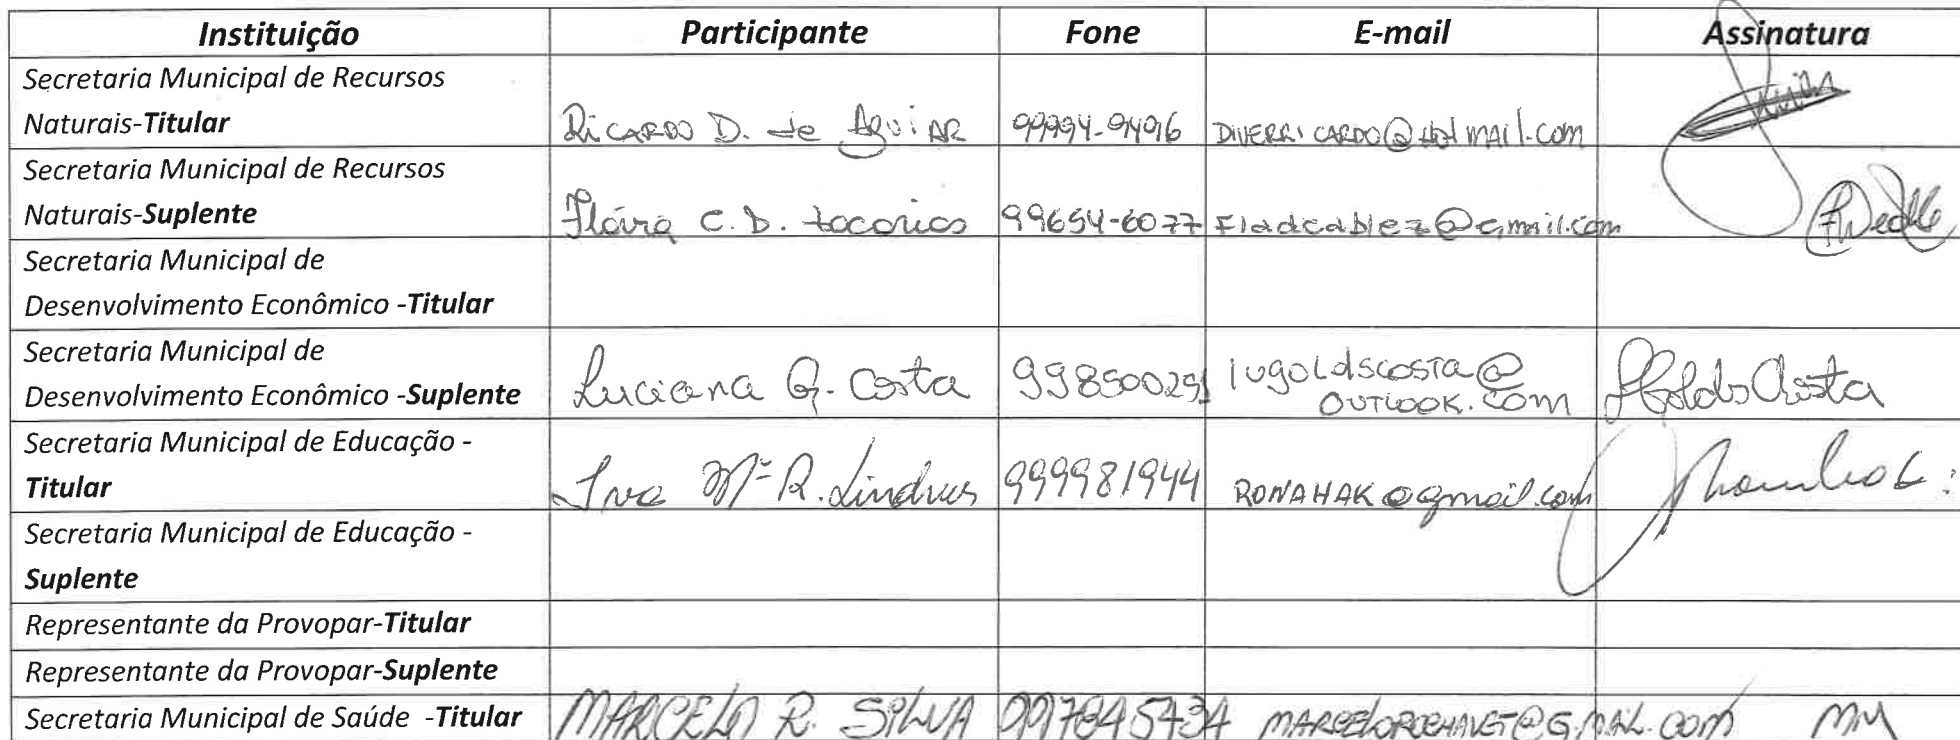 Instituição Participante Fone E-mail Assinatura
Secretaria Municipal de Recursos
Naturais-Titular Ricardo D. de Aguiar DIVERRICARDO@HOTMAIL.COM
Secretaria Municipal de Recursos
Naturais-Suplente Flávia C. D. 99654-6077 Fladcablez@gmail.com
Secretaria Municipal de
Desenvolvimento Econômico -Titular
Secretaria Municipal de lugoldscosta@
Desenvolvimento Econômico -Suplente Luciana G. Costa 998500291 OUTLOOK.COM
Secretaria Municipal de Educação -
Titular Mª R. 999981944 RONAHAK@gmail.com
Secretaria Municipal de Educação -
Suplente
Representante da Provopar-Titular
Representante da Provopar-Suplente
Secretaria Municipal de Saúde -Titular MARCELO R. SILVA 997845434